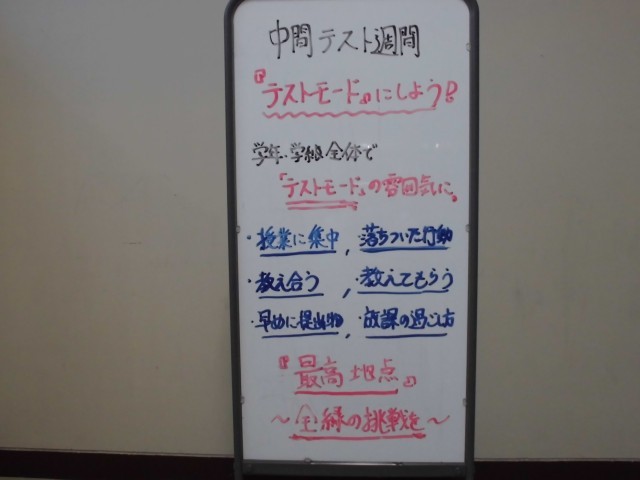 中間テスト週間
『テストモード』にしよう!
学年・学級全体で
『テストモード』の雰囲気に。
・授業に集中、・落ちついた行動
・教え合う、・教えてもらう
・早めに提出物、・放課の過ごし方
『最高地点』
～全緑の挑戦～